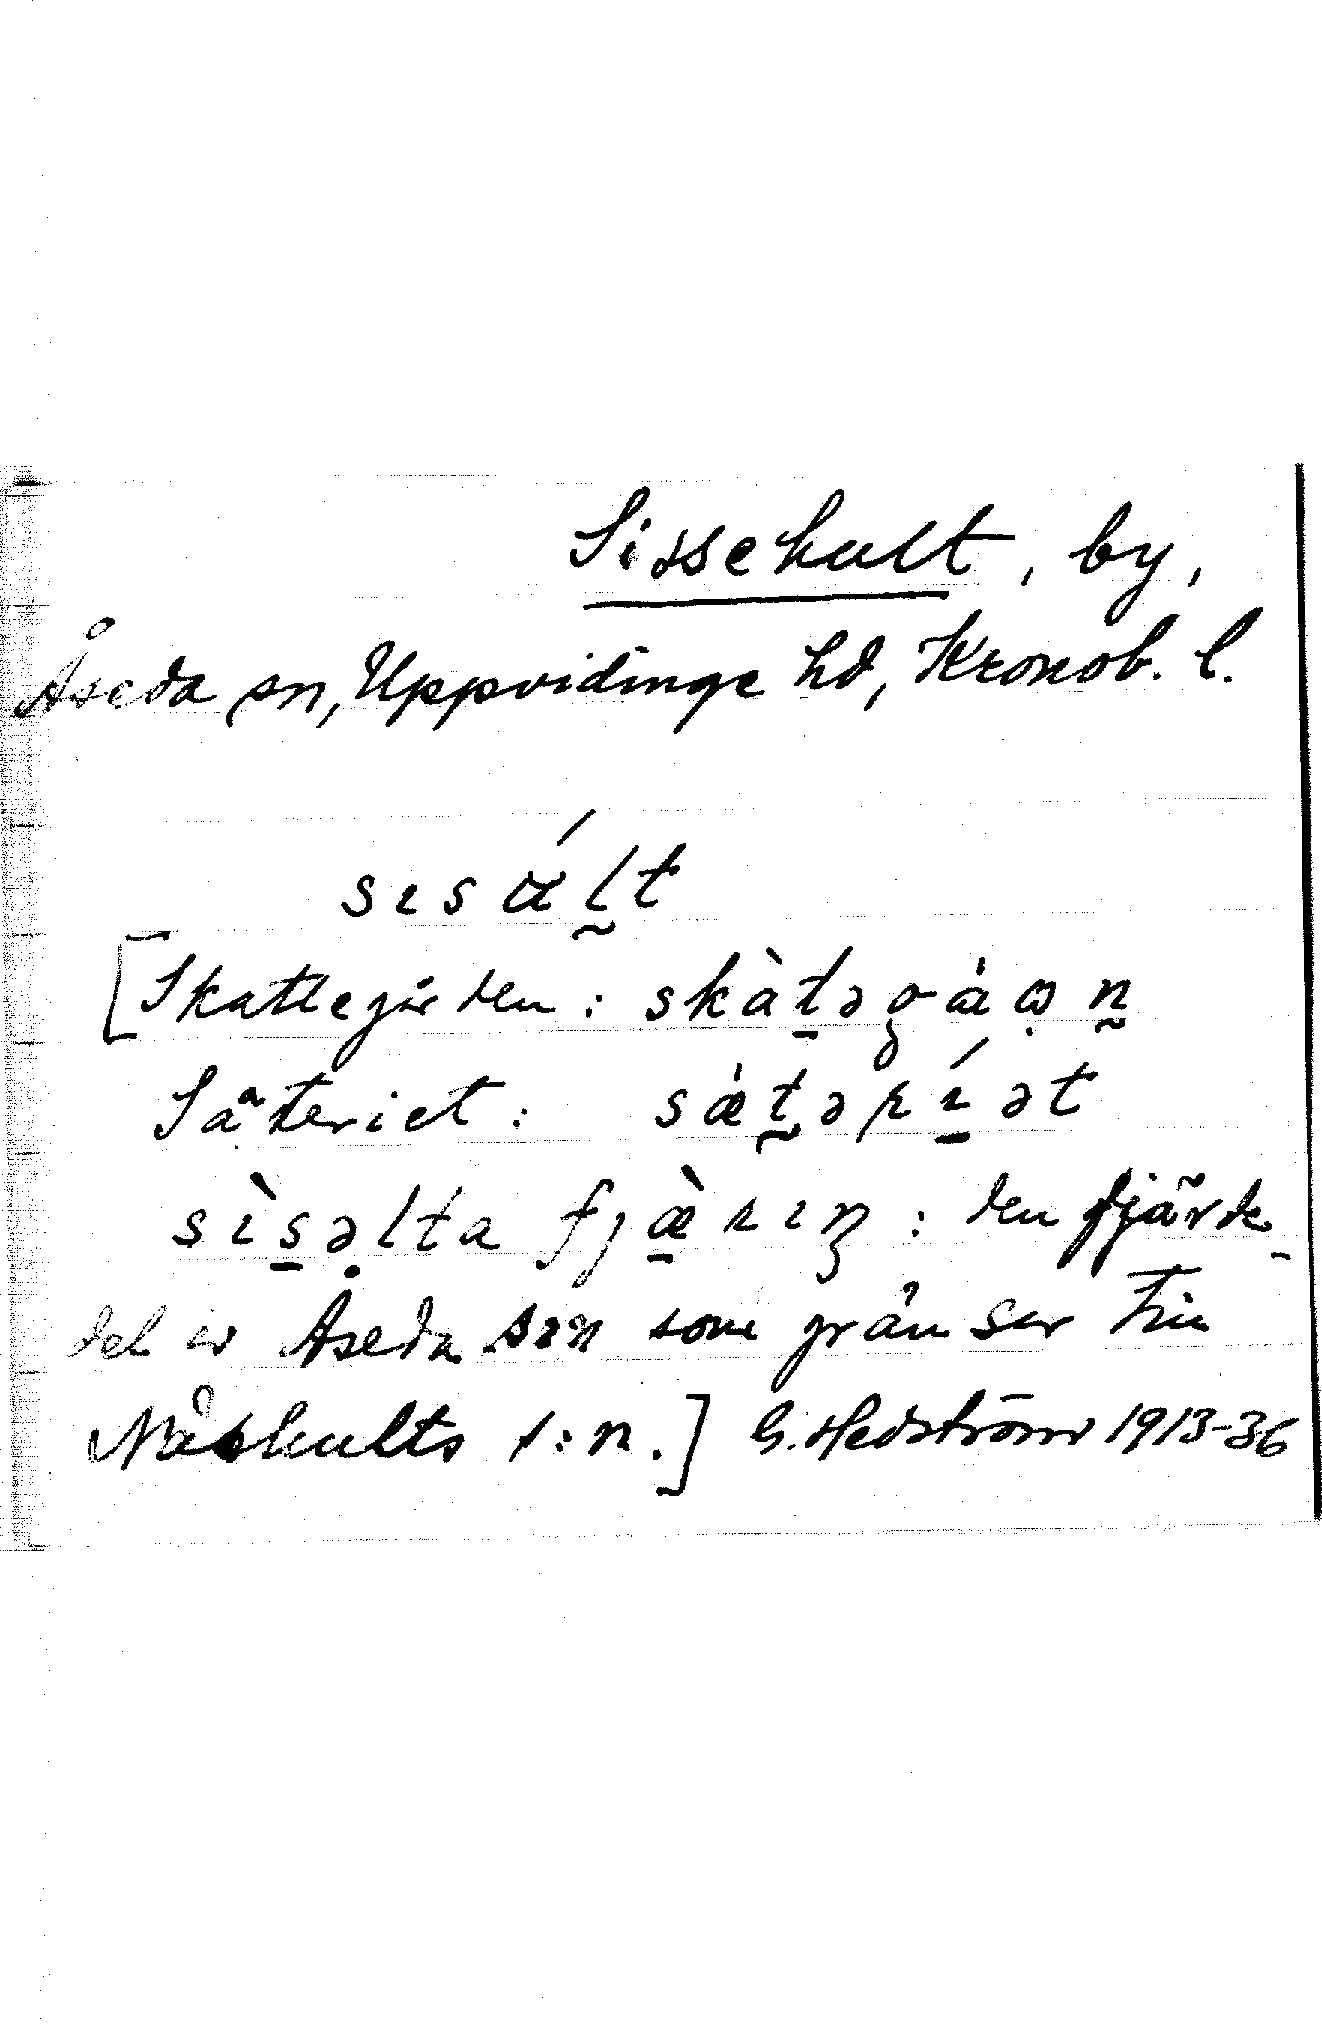 Sissehult, by,
Åseda sn, Uppvidinge hd, Kronob. l.
sɩsál̰t
[Skattegården: skàt̠əgáṇ̰
Säteriet: sæ̀t̰ərɩ̠́ət
sɩ̀s̠ə̣lta fjæ̠̀rɩŋ: den fjärde-
del av Åseda s:n som gränser till
Nåshults s:n.] G. Hedström 1913-36